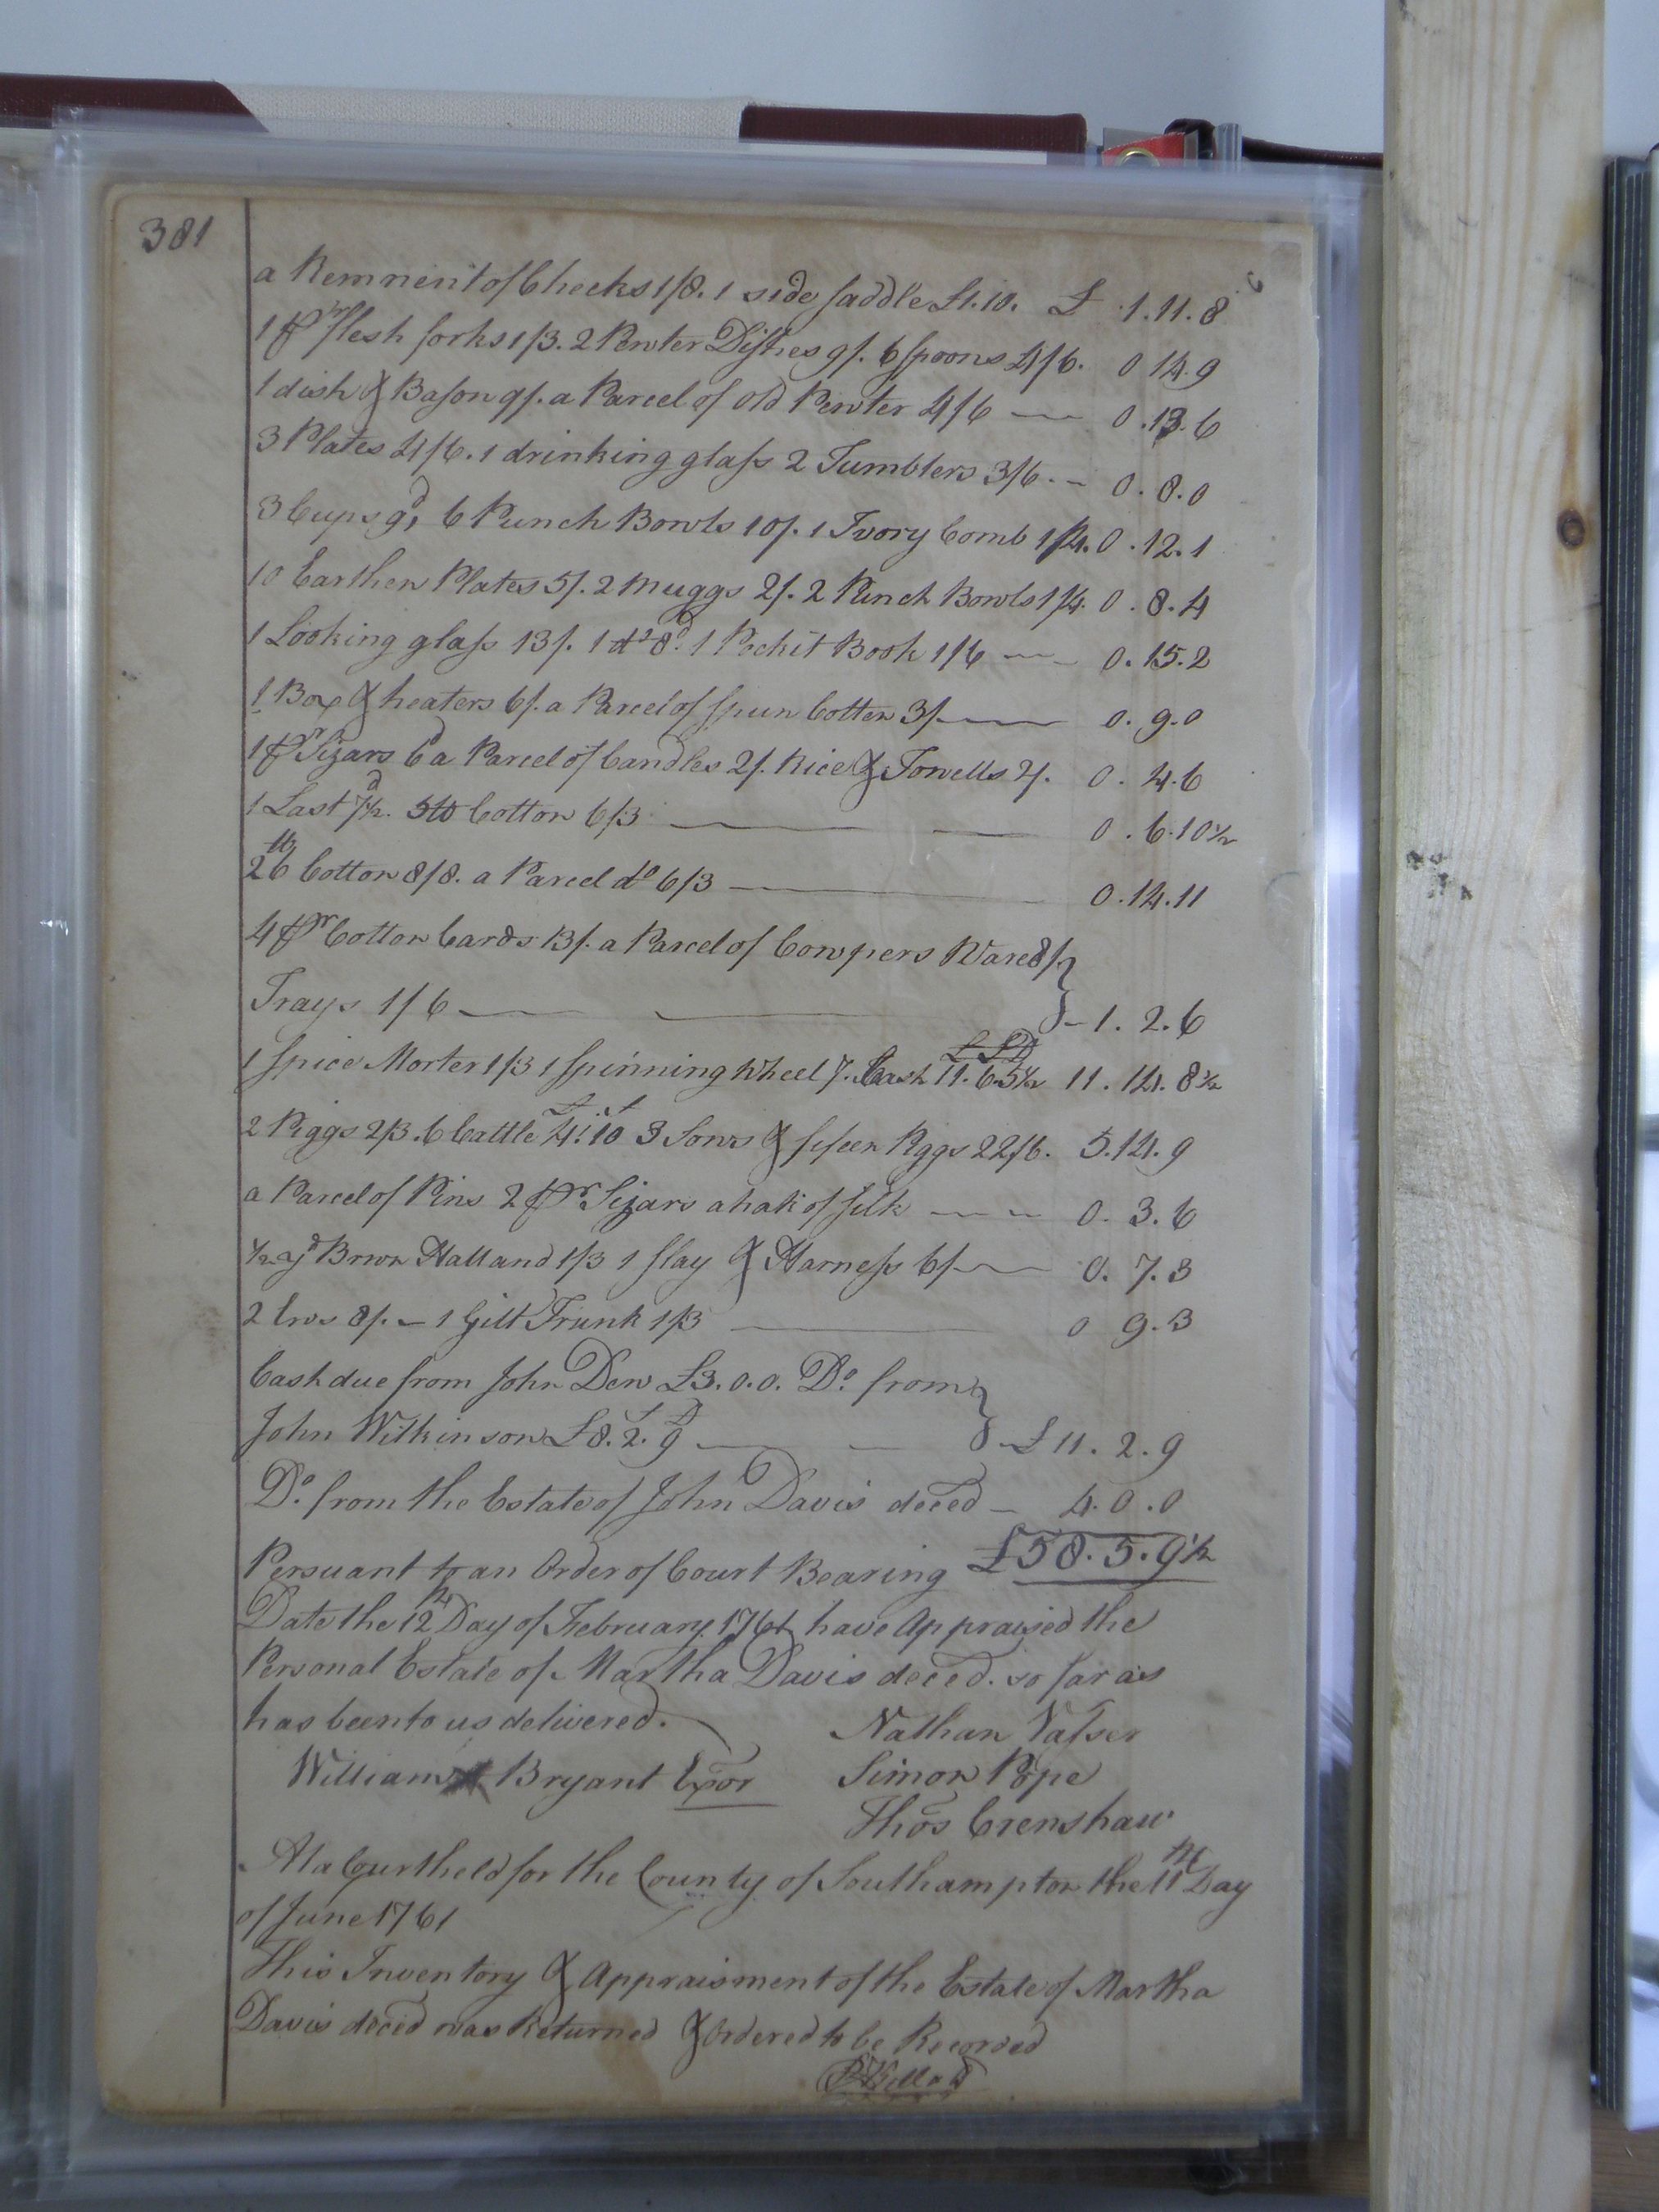 381
a Remnent of Checks 1/8. 1 side saddle £1.10. £ 1.11.8
1 pr flesh forks 1/3. 2 Pewter Dishes 9/. 6 spoons 4/6. 0 14.9
1 dish & Bason 9/. a Parcel of old Pewter 4/6 0.13.6
3 Plates 4/6. 1 drinking glass 2 Tumblers 3/6 0.8.0
3 Cups 9d, 6 Punch Bowls 10/. 1 Ivory Comb 1/4. 0.12.1
10 Earthen Plates 5/. 2 Muggs 2/. 2 Punch Bowls 1/4. 0.8.4
1 Looking glass 13/. 1 do 8d. 1 Pockit Book 1/6 0.15.2
1 Box & heaters 6/. a Parcel of spun Cotten 3/. 0.9.0
1 pr Sizars 6d a Parcel of Candles 2/. Rice & Towells 2/. 0.4.6
1 Last 7½d. 5 lb Cotton 6/3 0.6.10½
26 lb Cotton 8/8. a Parcel do 6/3 0.14.11
4 pr Cotton Cards 13/. a Parcel of Cowpers Ware 8/
Trays 1/6 1.2.6
1 Spice Morter 1/3 1 Spinning Wheel 7/. Cash 11.6.5½ 11.14.8½
2 Piggs 2/3. 6 Cattle £4.10 3 Sows & fifeen Piggs 22/6. 5.14.9
a Parcel of Pins 2 pr Sizars a hak of silk 0.3.6
½ yd Brwn Halland 1/3 1 Slay & Harness 6/. 0.7.3
2 Ews 8/. 1 Gilt Trunk 1/3 0 9.3
Cash due from John Dew £3.0.0. Do. from
John Wilkinson £8.2.9 £11.2.9
Do. from the Estate of John Davis deced 4.0.0
£58.5.9½
Persuant to an Order of Court Bearing
Date the 12th Day of February 1761 have Appraized the
Personal Estate of Martha Davis deced. so far as
has been to us delivered.
Nathan Vasser
William Bryant Exor Simon Pope
Thos Crenshaw
At a Court held for the County of Southampton the 11th Day
of June 1761
This Inventory & Appraisment of the Estate of Martha
Davis deced was Returned & Ordered to be Recorded